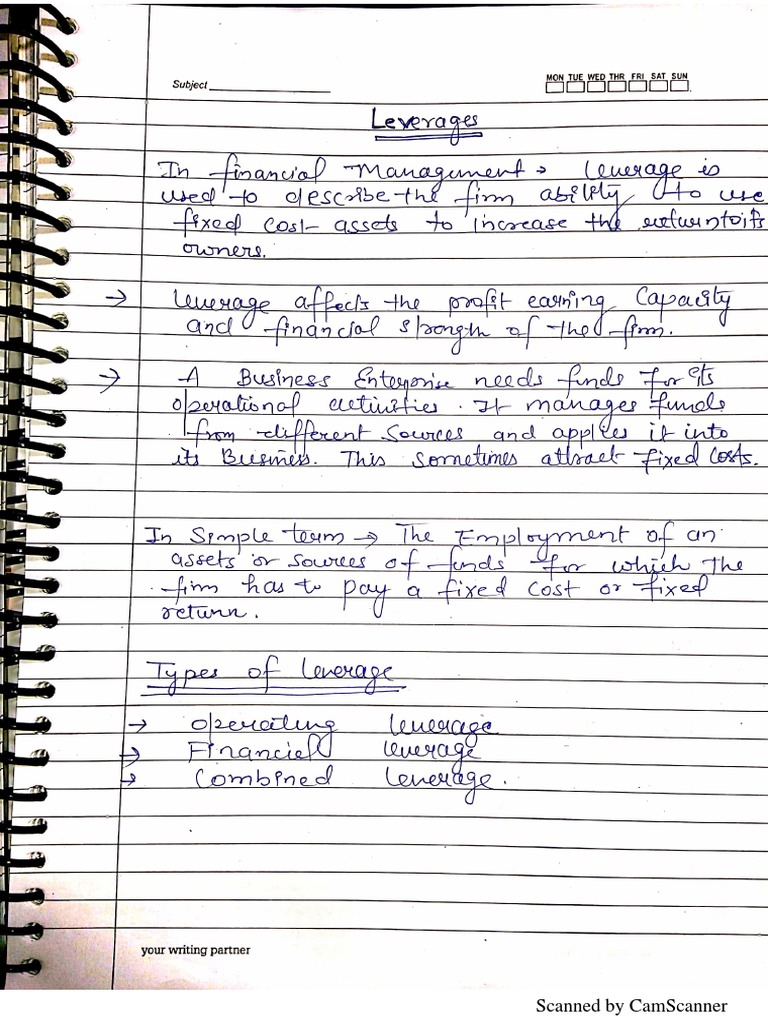 Subject
MON TUE WED THR FRI SAT SUN
Leverages
In financial Management, leverage is
used to describe the firm ability to use
fixed cost assets to increase the return to its
owners.
→ leverage affects the profit earning Capacity
and financial strength of the firm.
→ A Business Enterprise needs funds for its
operational activities. It manages funds
from different sources and applies it into
its Business. This sometimes attract fixed costs.
In Simple term → The Employment of an
assets or sources of funds for which the
firm has to pay a fixed cost or fixed
return.
Types of leverage
→ Operating leverage
→ Financial leverage
→ Combined leverage.
your writing partner
Scanned by CamScanner